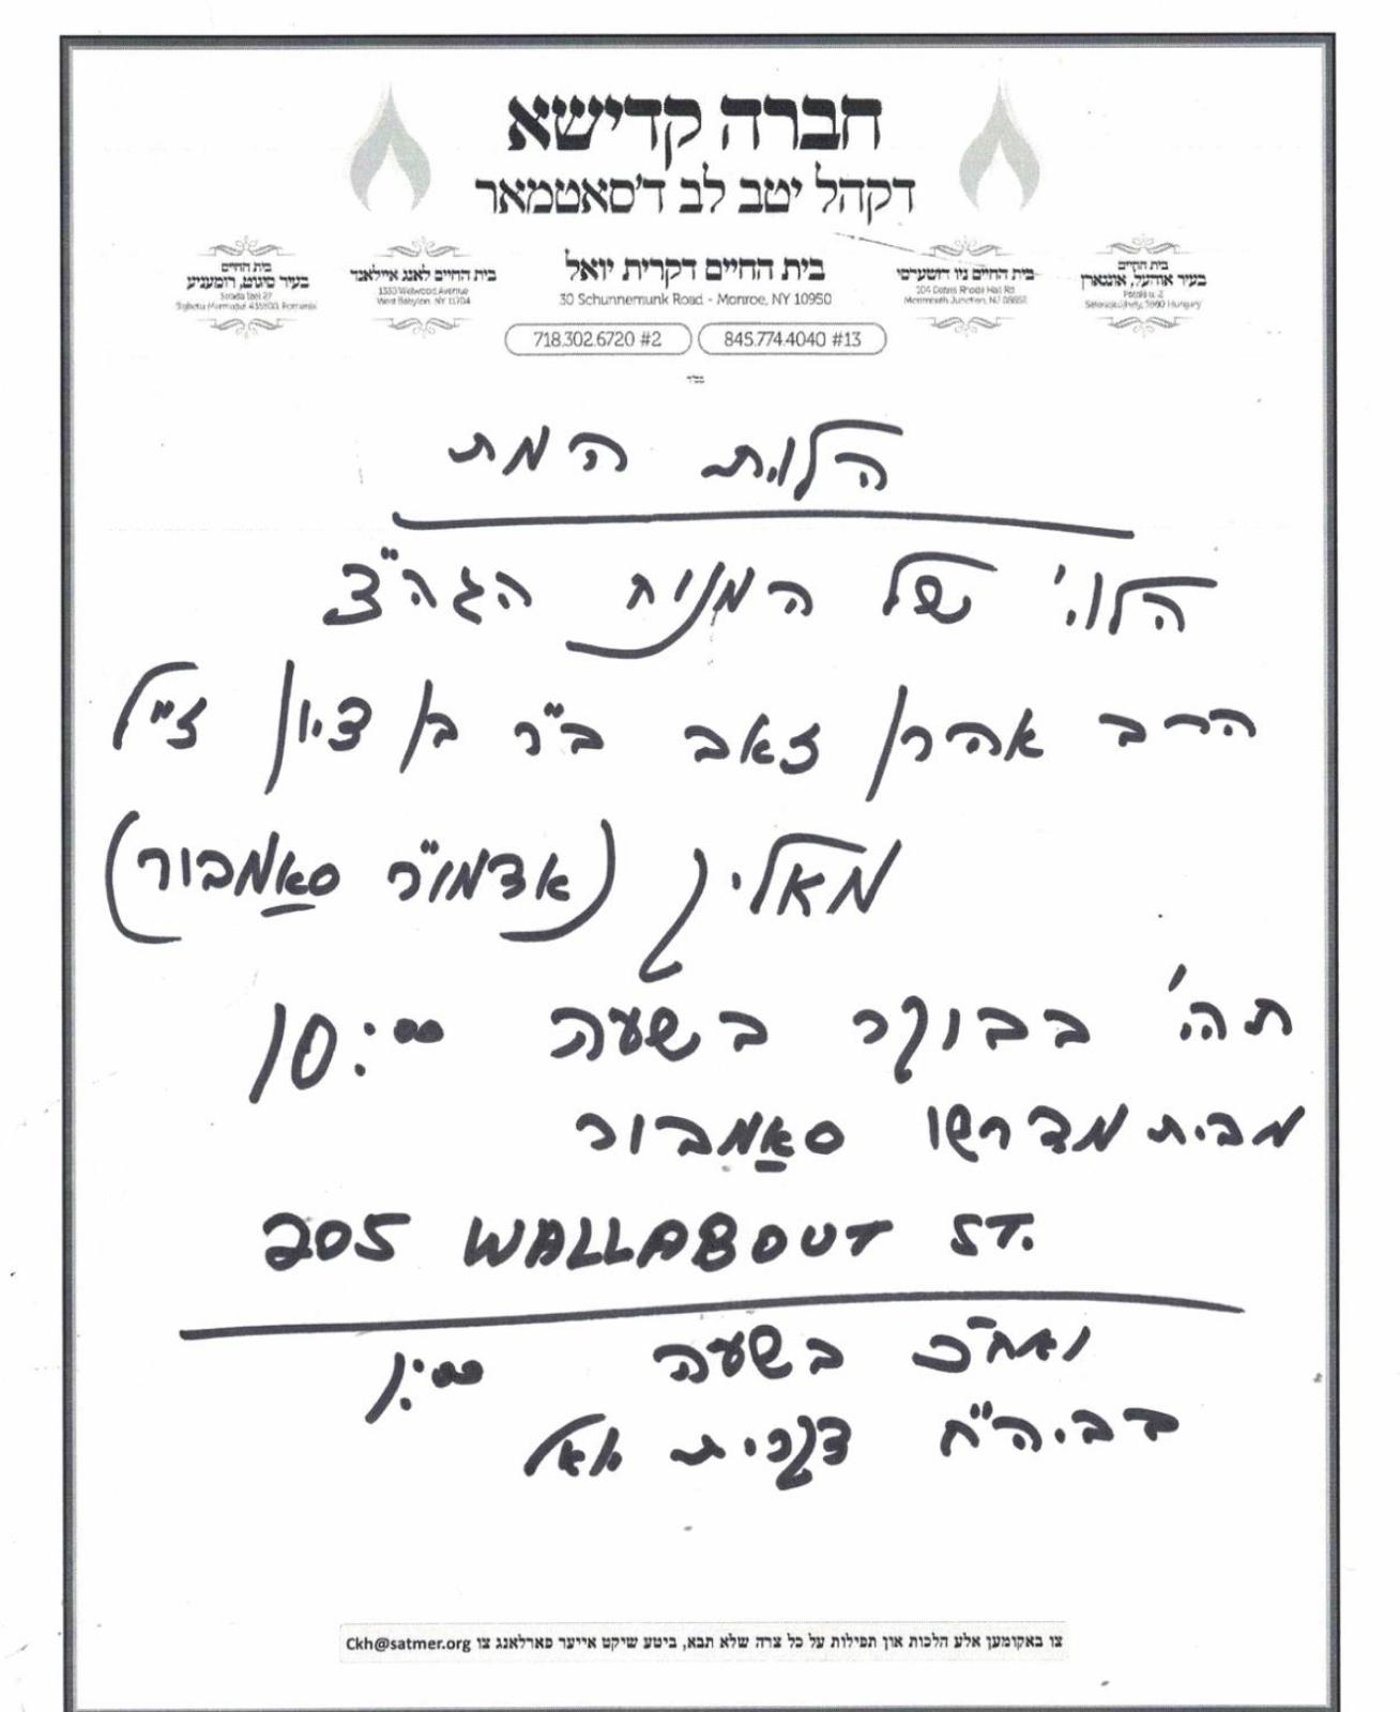 חברה קדישא
דקהל יטב לב ד'סאטמאר
בית החיים
בעיר סיגוט, רומעניע
Strada Izei 27
Sighetu Marmației 435500, Romania
בית החיים לאנג איילאנד
1330 Wellwood Avenue
West Babylon, NY 11704
בית החיים דקרית יואל
30 Schunnemunk Road - Monroe, NY 10950
718.302.6720 #2
845.774.4040 #13
בית החיים ניו דזשערסי
Rhode Hall Rd
Monmouth Junction, NJ 08852
בית החיים
בעיר אוהעל, אונגארן
Hungary
בס"ד
הלוית המת
הלוי' של המנוח הגה"צ
הרב אהרן זאב ב"ר בן ציון ז"ל
מאלין (אדמו"ר סאַמבור)
תהי' בבוקר בשעה 10:00
מבית מדרשו סאַמבור
205 WALLABOUT ST.
ואח"כ בשעה 1:00
בביה"ח דקרית יואל
צו באקומען אלע הלכות און תפילות על כל צרה שלא תבא, ביטע שיקט אייער פארלאנג צו Ckh@satmer.org